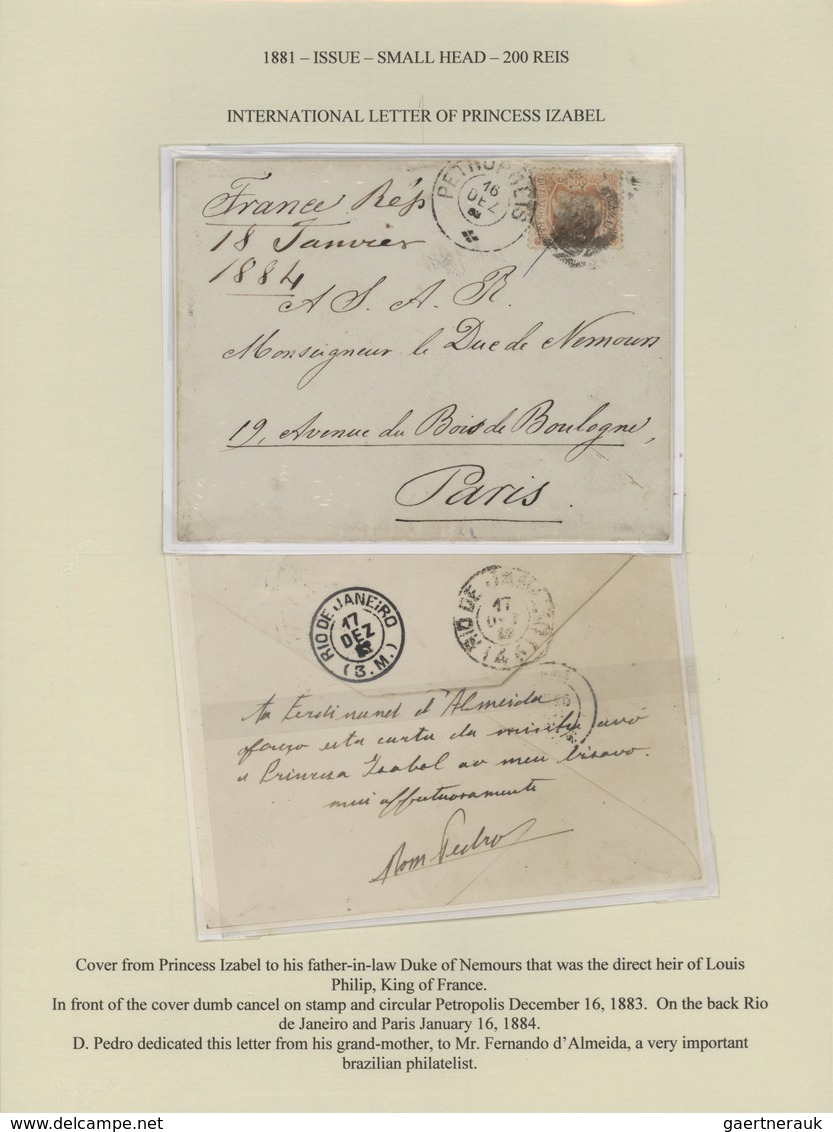 1881 – ISSUE – SMALL HEAD – 200 REIS
INTERNATIONAL LETTER OF PRINCESS IZABEL
PETROPOLIS
16
DEZ
France Rép
18 Janvier
1884
A S. A. R.
Monseigneur le Duc de Nemours
19, Avenue du Bois de Boulogne,
Paris.
RIO DE JANEIRO
17
DEZ
(3.M.)
RIO DE JANEIRO
17
Ao Ferdinand d'Almeida
ofereço esta carta da minha avó
a Princesa Isabel ao meu bisavo.
mui affectuosamente
Dom Pedro
Cover from Princess Izabel to his father-in-law Duke of Nemours that was the direct heir of Louis
Philip, King of France.
In front of the cover dumb cancel on stamp and circular Petropolis December 16, 1883. On the back Rio
de Janeiro and Paris January 16, 1884.
D. Pedro dedicated this letter from his grand-mother, to Mr. Fernando d'Almeida, a very important
brazilian philatelist.
gaertnerauk